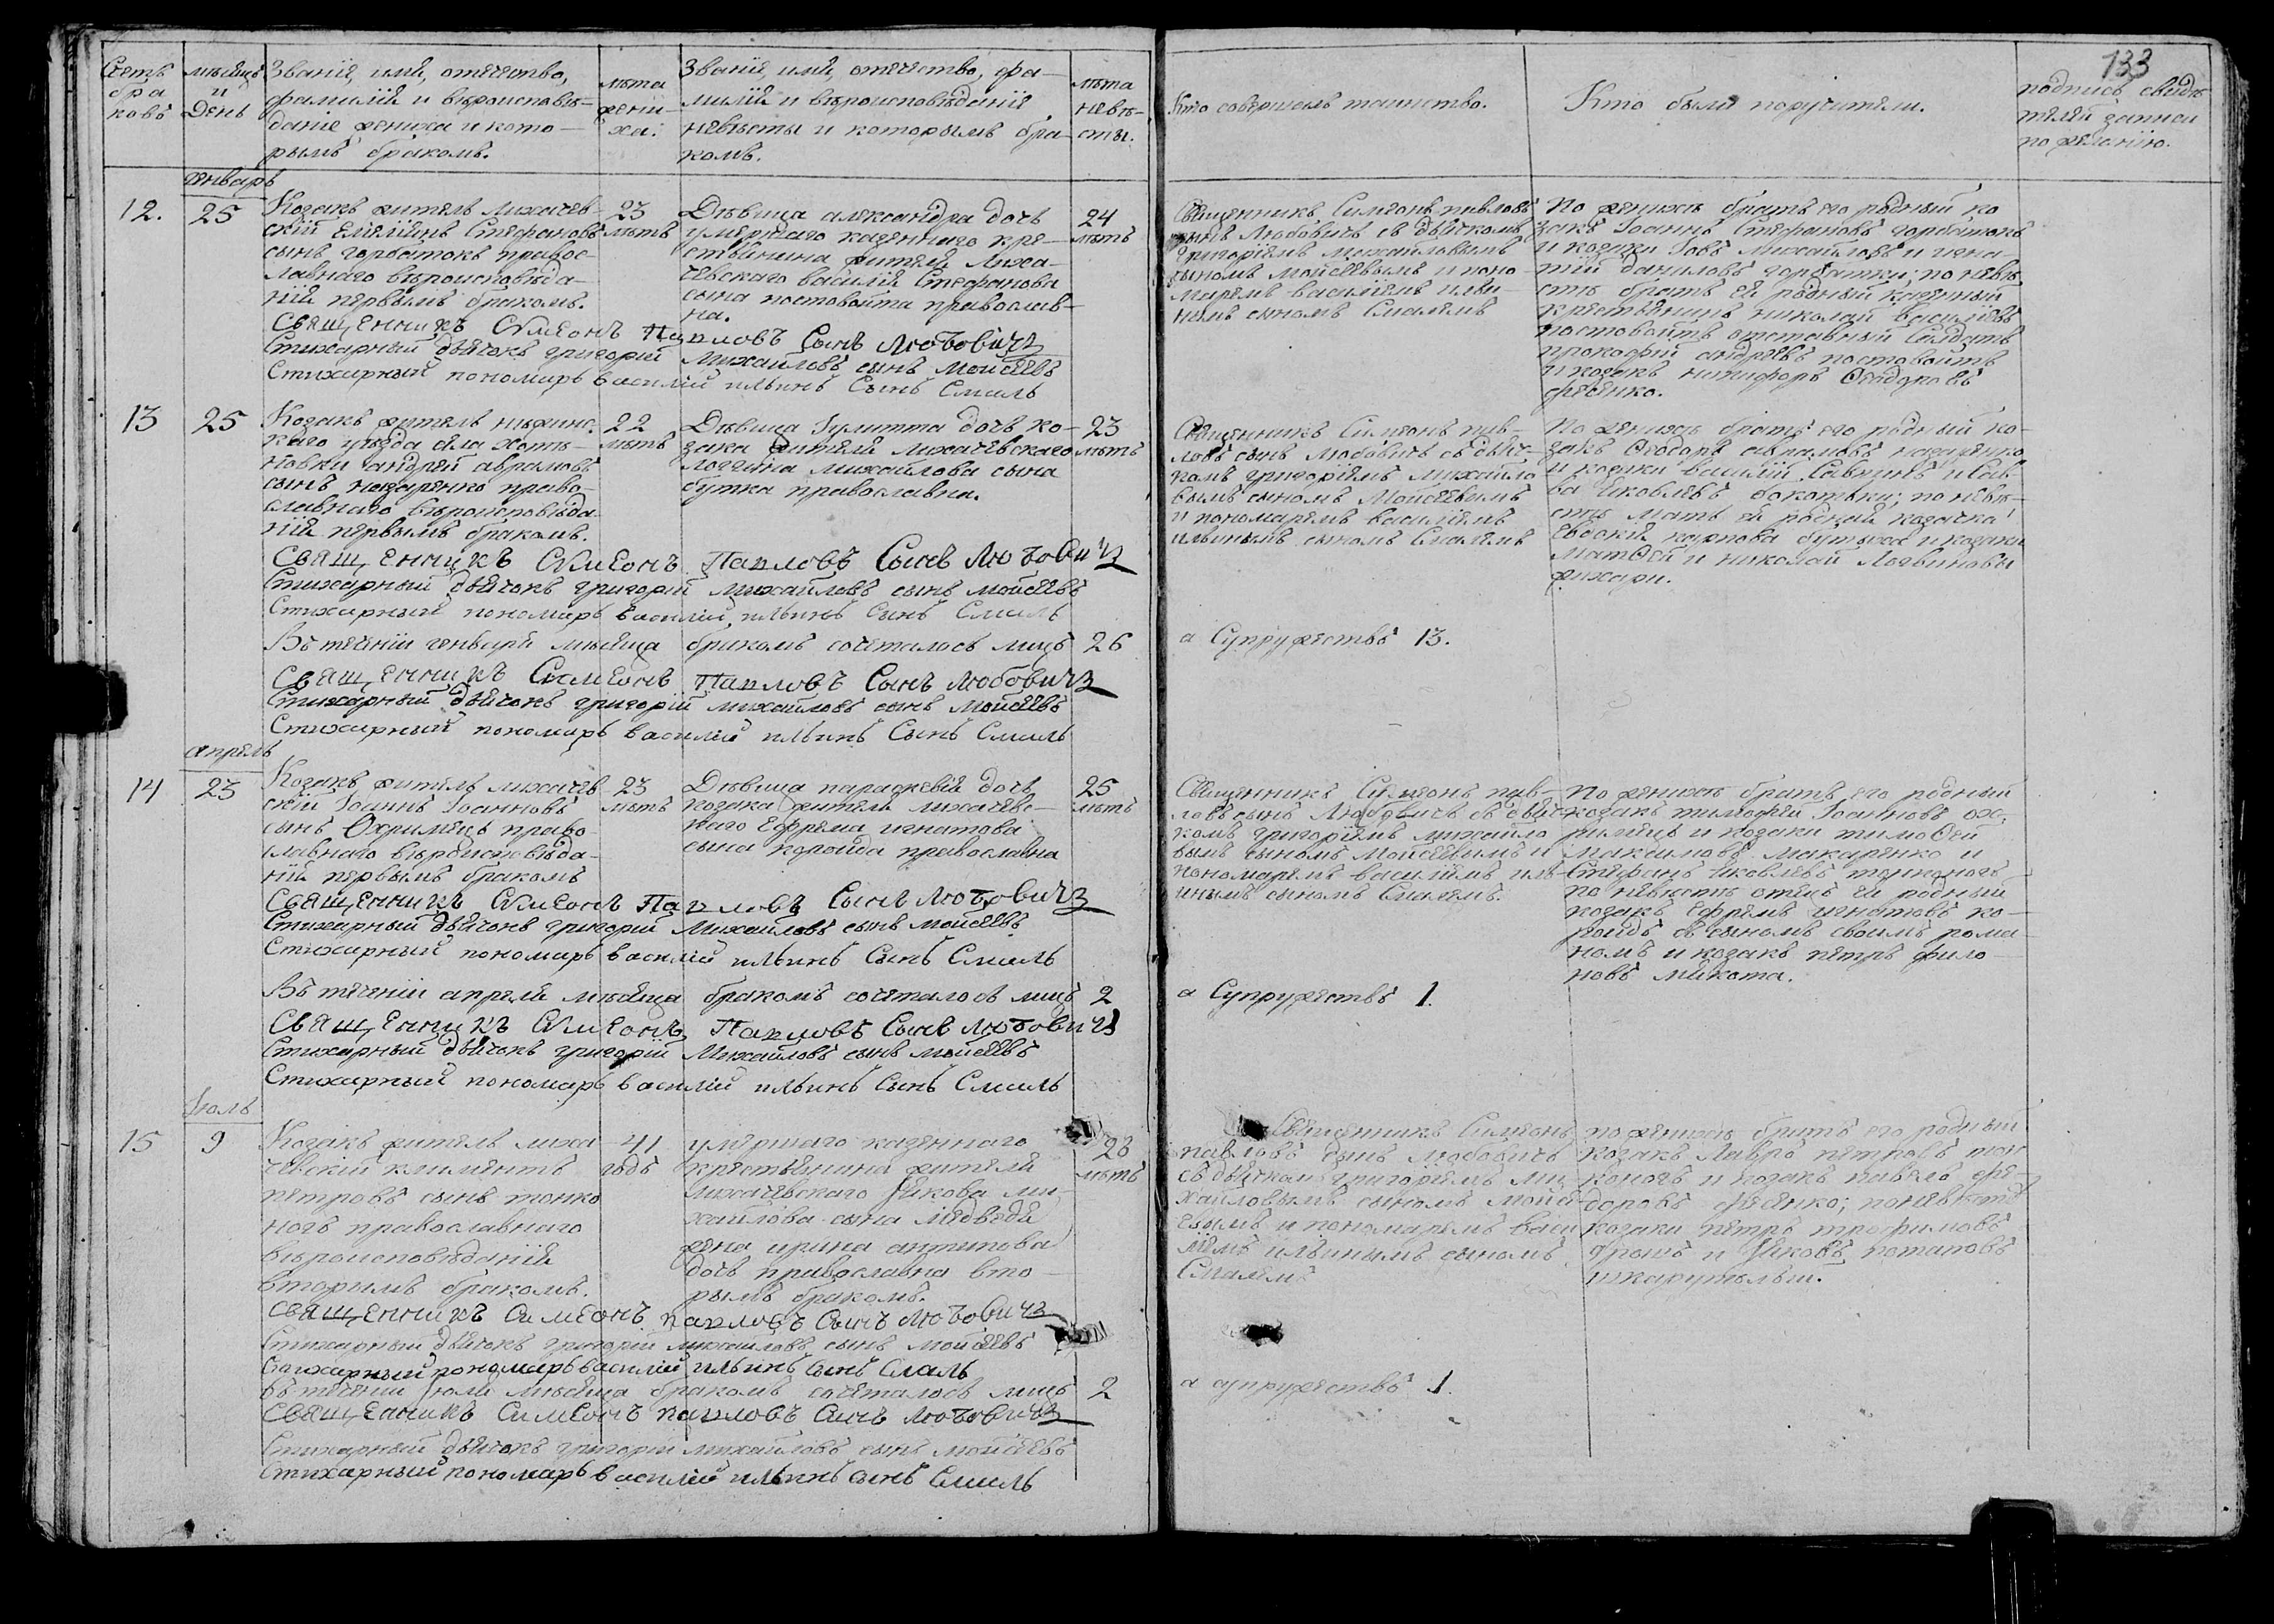 133
Счетъ
бра
ковъ
мѣсяцъ
и
День
Званіе, имя, отечество,
фамилія и вѣроисповѣ-
даніе жениха и кото-
рымъ бракомъ.
лѣта
жени-
ха.
Званіе, имя, отечество, фа-
милія и вѣроисповѣданіе
невѣсты и которымъ бра-
комъ.
лѣта
невѣ-
сты.
Кто совершалъ таинство.
Кто были поручители.
подпись свидѣ
телей записи
по желанію.
генварь
12.
25
Козакъ житель лихачев-
скій Емеліянъ Стефановъ
сынъ горбатокъ правос-
лавнаго вѣроисповѣда-
нія первымъ бракомъ.
23
лѣтъ
Дѣвица александра дочь
умершаго казеннаго кре-
стьянина жителя Лиха-
чевскаго василія Стефанова
сына постовойта православ-
на.
24
лѣтъ
Священникъ Симеонъ павловъ
сынъ Любовичъ съ дьячкомъ
григоріемъ михайловымъ
сыномъ мойсеевымъ и поно-
маремъ василіемъ ильи-
нымъ сыномъ Смалемъ
По женихѣ братъ его родный ко
закъ Іоаннъ Стефановъ горбатокъ
и козаки Іовъ михайловъ и игна-
тій даниловъ горбатки; по невѣ
стѣ братъ ея родный казенный
крестьянинъ николай василіевъ
постовойтъ отставный Салдатъ
прокофій андреевъ постовойтъ
и козакъ никифоръ Ѳеодоровъ
фесенко.
Священникъ Сѵмеонъ Павловъ Сынъ Любовичъ
Стихарный дьячокъ григорій Михайловъ сынъ мойсеевъ
Стихарный пономарь василій ильинъ Сынъ Смаль
13
25
Козакъ житель нѣжинс-
каго уѣзда села хотѣ-
новки андрей аврамовъ
сынъ назаренко право-
славнаго вѣроисповѣда-
нія первымъ бракомъ.
22
лѣтъ
Дѣвица Іулитта дочь ко-
зака жителя лихачевскаго
логгина михайлова сына
бутка православна.
23
лѣтъ
Священникъ Симеонъ пав-
ловъ сынъ Любовичъ съ дьяч-
комъ григоріемъ михайло
вымъ сыномъ Мойсеевымъ
и пономаремъ василіемъ
ильинымъ сыномъ Смалемъ
По женихѣ братъ его родный ко-
закъ Ѳеодоръ аврамовъ назаренко
и козаки василій Саввинъ и Сав-
ва Яковлевъ ; по невѣ-
стѣ мать ея родная козачка
Евдокія карпова бутыха и козаки
Матѳей и николай Логвиновы
.
Священникъ Сѵмеонъ Павловъ Сынъ Любовичъ
Стихарный дьячокъ григорій михайловъ сынъ мойсеевъ
Стихарный пономарь василій, ильинъ Сынъ Смаль
Въ теченіи генваря мѣсяца бракомъ сочеталось лицъ 26
а Супружествъ 13.
Священникъ Сѵмеонъ Павловъ Сынъ любовичъ
Стихарный дьячокъ григорій михайловъ сынъ Мойсеевъ
Стихарный пономарь василій ильинъ Сынъ Смаль
апрель
14
23
Козакъ житель лихачев
скій Іоаннъ Іоанновъ
сынъ Охримецъ право-
славнаго вѣроисповѣда-
нія первымъ бракомъ
23
лѣтъ
Дѣвица параскевія дочь
козака жителя лихачевс-
каго Ефрема игнатова
сына коропда православна
25
лѣтъ
Священникъ Симеонъ пав-
ловъ сынъ Любовичъ съ дьяч-
комъ григоріемъ михайло
вымъ сыномъ Мойсеевымъ и
пономаремъ василіемъ иль-
инымъ сыномъ Смалемъ.
По женихѣ братъ его родный
козакъ тимофей Іоанновъ ох-
римецъ и козаки тимоѳей
Максимовъ макаренко и
Стефанъ Яковлевъ тонконогъ
по невѣстѣ отецъ ея родный
козакъ Ефремъ игнатовъ ко-
съ сыномъ своимъ рома-
номъ и козакъ петръ фило-
новъ микота.
Священникъ Сѵмеонъ Павловъ Сынъ Любовичъ
Стихарный дьячокъ григорій Михайловъ сынъ мойсеевъ
Стихарный пономарь василій ильинъ Сынъ Смаль
Въ теченіи апреля мѣсяца бракомъ сочеталось лицъ 2
а Супружествъ 1.
Священникъ Сѵмеонъ Павловъ Сынъ Любовичъ
Стихарный дьячокъ григорій Михайловъ сынъ мойсеевъ
Стихарный пономарь василій ильинъ Сынъ Смаль
Іюль
15
9
Козакъ житель лиха-
чевскій климентъ
петровъ сынъ тонко
ногъ православнаго
вѣроисповѣданія
вторымъ бракомъ.
41
годъ
умершаго казеннаго
крестьянина жителя
лихачевскаго Якова ми-
хайлова сына Медведя
жена ирина антипова
дочь православна вто-
рымъ бракомъ.
28
лѣтъ
Священникъ Симеонъ
павловъ сынъ любовичъ
съ дьячкомъ григоріемъ ми
хайловымъ сыномъ мойсе
евымъ и пономаремъ васи
ліемъ ильинымъ сыномъ
Смалемъ
по женихѣ братъ его родный
козакъ Лавръ петровъ тон
коногъ и козакъ павелъ фе-
доровъ фесенко; по невѣстѣ
козаки петръ трофимовъ
и Яковъ потаповъ
.
Священникъ Симеонъ павловъ Сынъ Любовичъ
Стихарный дьячокъ григорій михайловъ сынъ мойсеевъ
Стихарный пономарь василій ильинъ сынъ Смаль
въ теченіи Іюля мѣсяца бракомъ сочеталось лицъ 2
а супружествъ 1.
Священникъ Симеонъ павловъ Сынъ Любовичъ
Стихарный дьячокъ григорій михайловъ сынъ мойсеевъ
Стихарный пономарь василій ильинъ сынъ Смаль